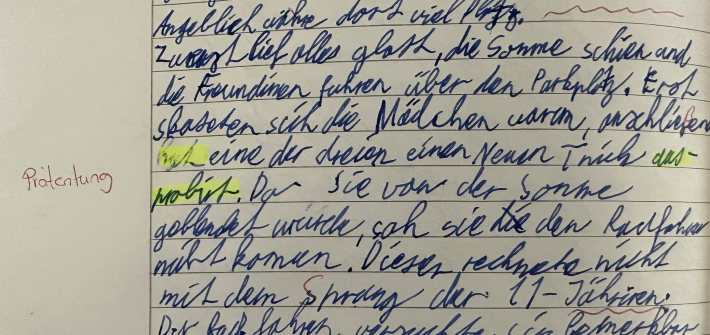 Angeblich währe dort viel Platz.
Zuerst lief alles glatt, die Sonne schien und
die Freundinen fuhren über den Parkplatz. Erst
skateten sich die Mädchen warm, anschließend
hat eine der dreien einen Neuen Trick aus-
probirt. Da Sie von der Sonne
Prätentung
geblendet wurde, sah sie den Radfahrer
niht komen. Dieser rechnete nicht
mit dem Sprung der 11-Jähriren.
Der Radfahrer versuchte